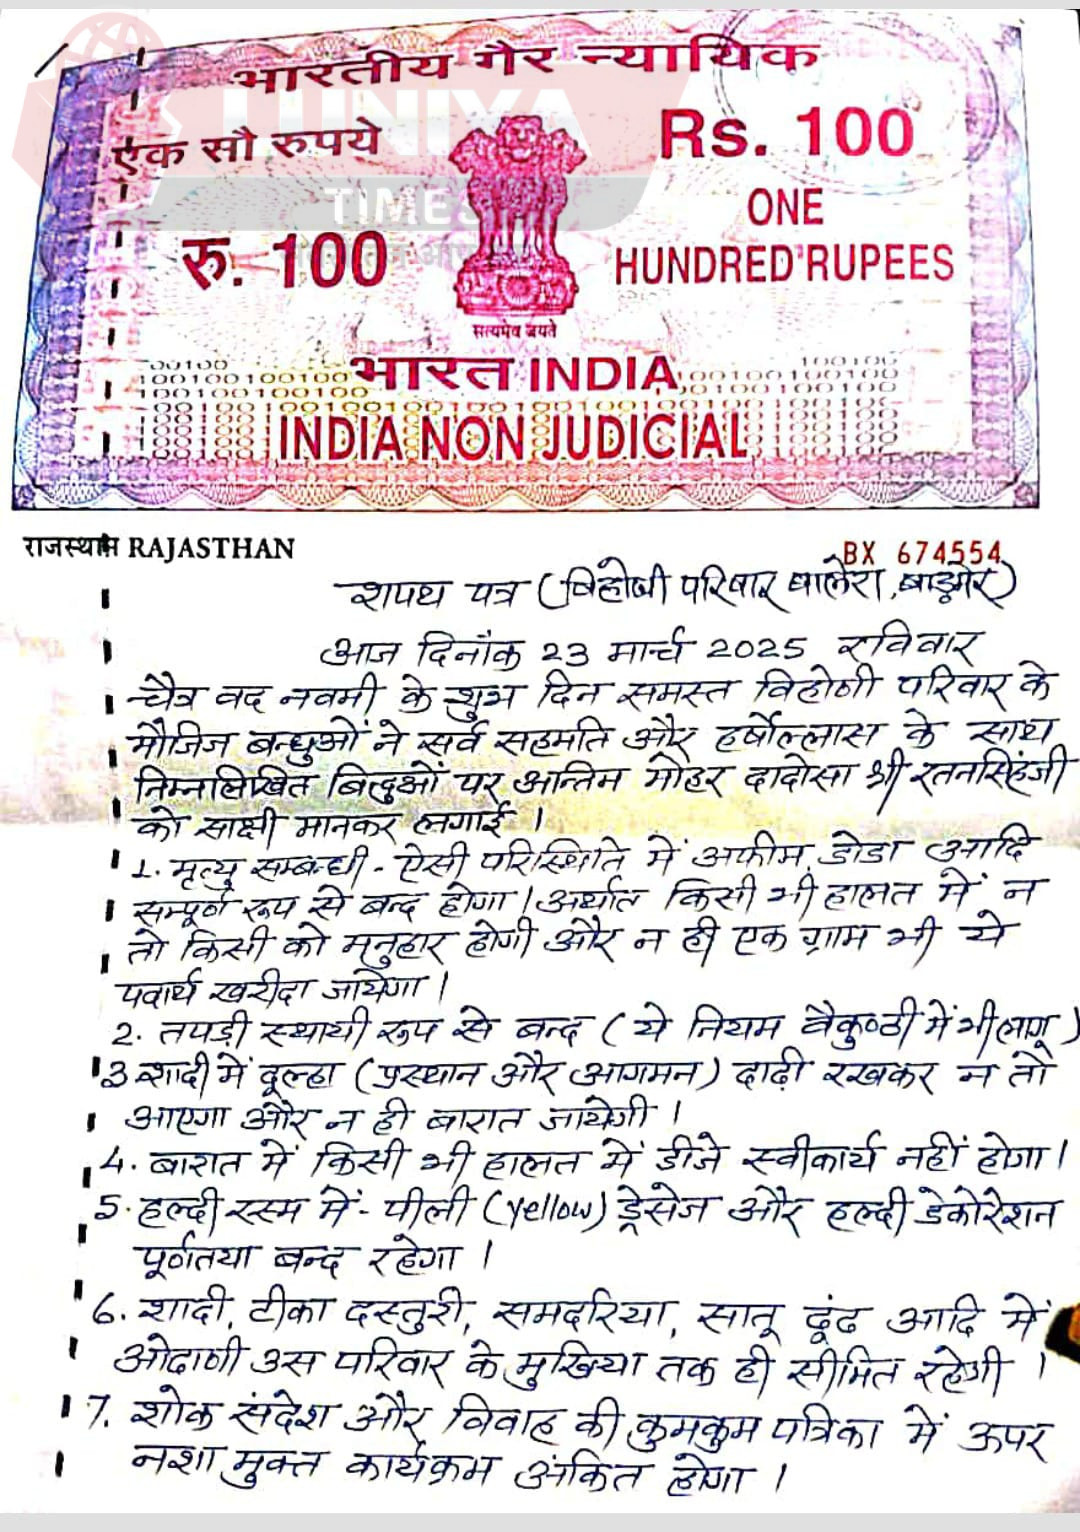 भारतीय गैर न्यायिक
LUNIYA
TIMES
एक सौ रुपये
Rs. 100
रु. 100
ONE
HUNDRED RUPEES
सत्यमेव जयते
भारत INDIA
INDIA NON JUDICIAL
राजस्थान RAJASTHAN
BX 674554
शपथ पत्र (विहोणी परिवार बालेरा, बाड़मेर)
आज दिनांक 23 मार्च 2025 रविवार
चैत्र वद नवमी के शुभ दिन समस्त विहोणी परिवार के
मौजिज बन्धुओं ने सर्व सहमति और हर्षोल्लास के साथ
निम्नलिखित बिदुओं पर अन्तिम मोहर दादोसा श्री रतनसिंहजी
को साक्षी मानकर लगाई।
1. मृत्यु सम्बन्धी - ऐसी परिस्थिति में अफीम, डोडा आदि
सम्पूर्ण रूप से बन्द होगा। अर्थात किसी भी हालत में न
तो किसी को मनुहार होगी और न ही एक ग्राम भी ये
पदार्थ खरीदा जायेगा।
2. तपड़ी स्थायी रूप से बन्द (ये नियम वैकुण्ठी में भी लागू)
3 शादी में दूल्हा (प्रस्थान और आगमन) दाढ़ी रखकर न तो
आएगा और न ही बारात जायेगी।
4. बारात में किसी भी हालत में डीजे स्वीकार्य नहीं होगा।
5. हल्दी रस्म में - पीली (yellow) ड्रेसेज और हल्दी डेकोरेशन
पूर्णतया बन्द रहेगा।
6. शादी, टीका दस्तुरी, समदरिया, सातू ढूंढ आदि में
ओढाणी उस परिवार के मुखिया तक ही सीमित रहेगी।
7. शोक संदेश और विवाह की कुमकुम पत्रिका में ऊपर
नशा मुक्त कार्यक्रम अंकित होगा।